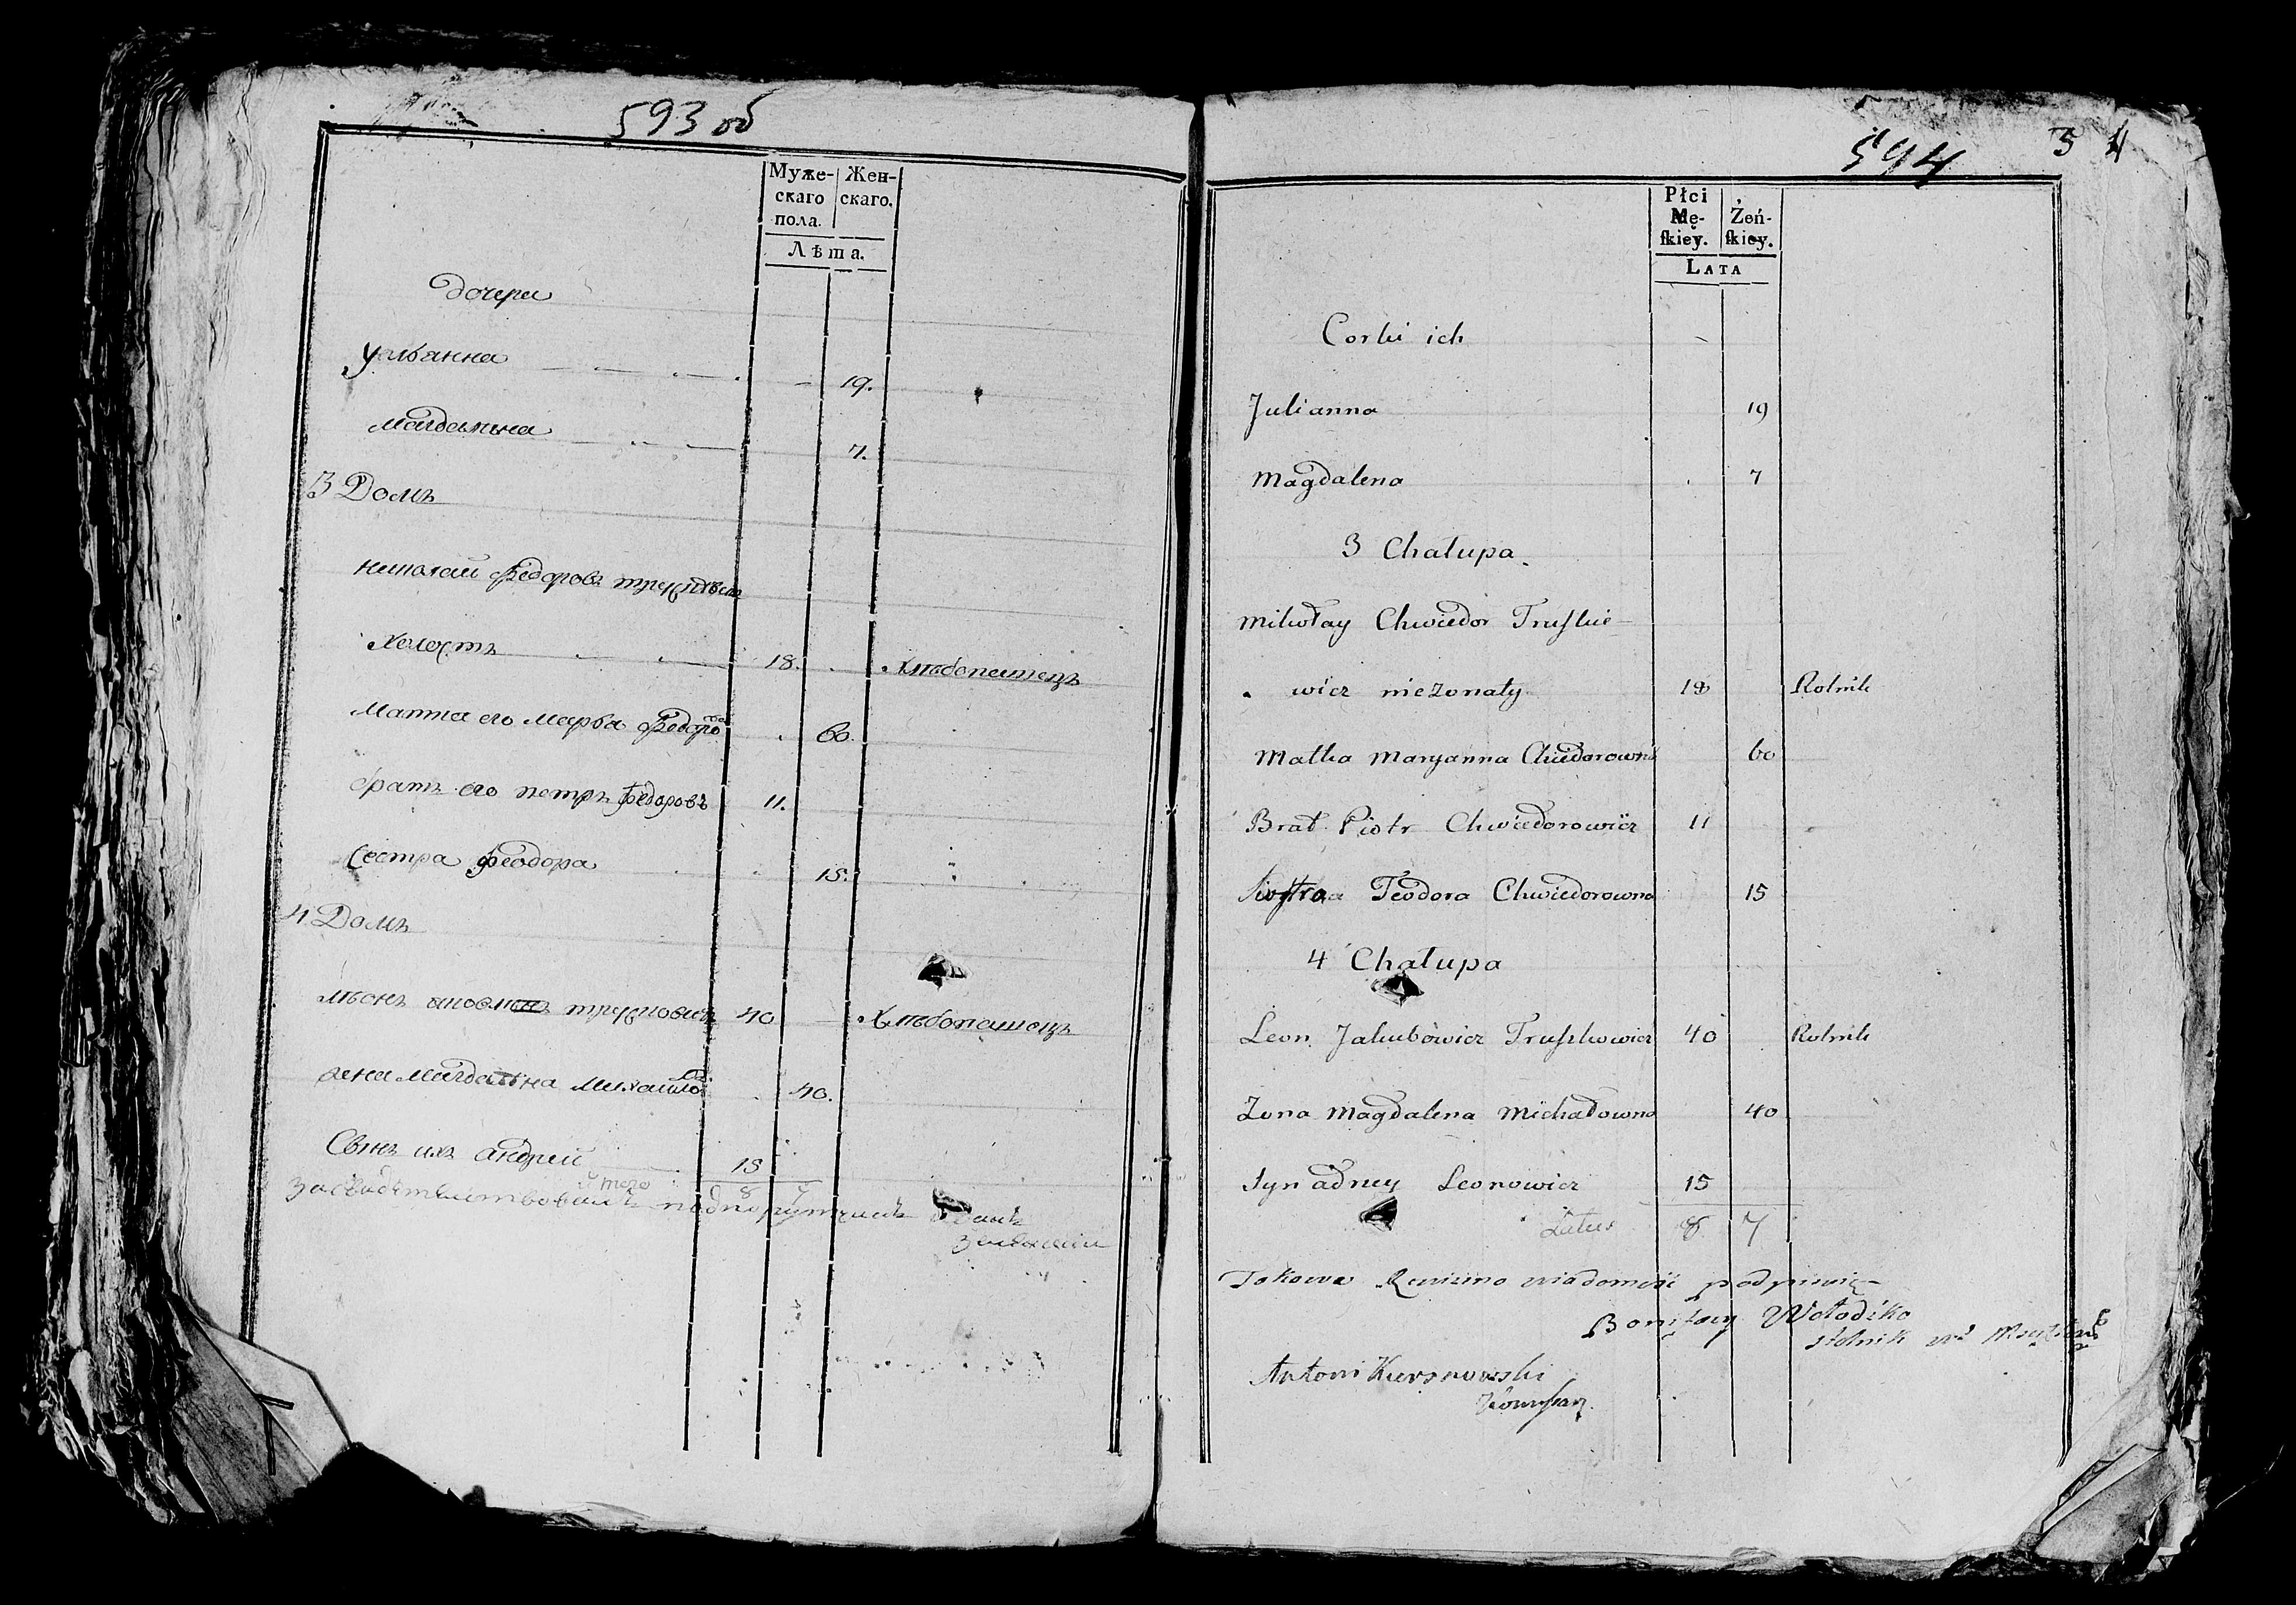 593 об
Муже-
скаго
пола.
Жен-
скаго.
Лѣта.
дочери
Ульянна 19.
Магдалына 7.
3 Домъ
Николай Федоровъ
Холостъ 18. Хлѣбопашецъ
Матка его Марфа Федоро 60.
братъ его петръ Федоровъ 11.
Сестра Феодора 15.
4 Домъ
40 Хлѣбопашецъ
жена Магдалена Михайло 40.
Сынъ ихъ андрей 15
Итого 8 7
Засвидѣтельствовалъ подпорутчикъ
594
3 4
Płci
Mę-
ſkiey.
Żeń-
ſkiey.
LATA
Corki ich
Julianna 19
Magdalena 7
3 Chalupa
Mikołay Chwiedor Truſkie-
wicz nieżonaty 18 Rolnik
Matka Maryanna Chwiedorowna 60
Brat Piotr Chwiedorowicz 11
Siostra Teodora Chwiedorowna 15
4 Chałupa
Leon Jakubowicz Truſzkowicz 40 Rolnik
Żona Magdalena Michałowna 40
Syn adney Leonowicz 15
Latus 8 7
Takowa wiadomość podpisuię
Bonifacy Wołodźko
Stolnik
Antoni
Komiſarz.